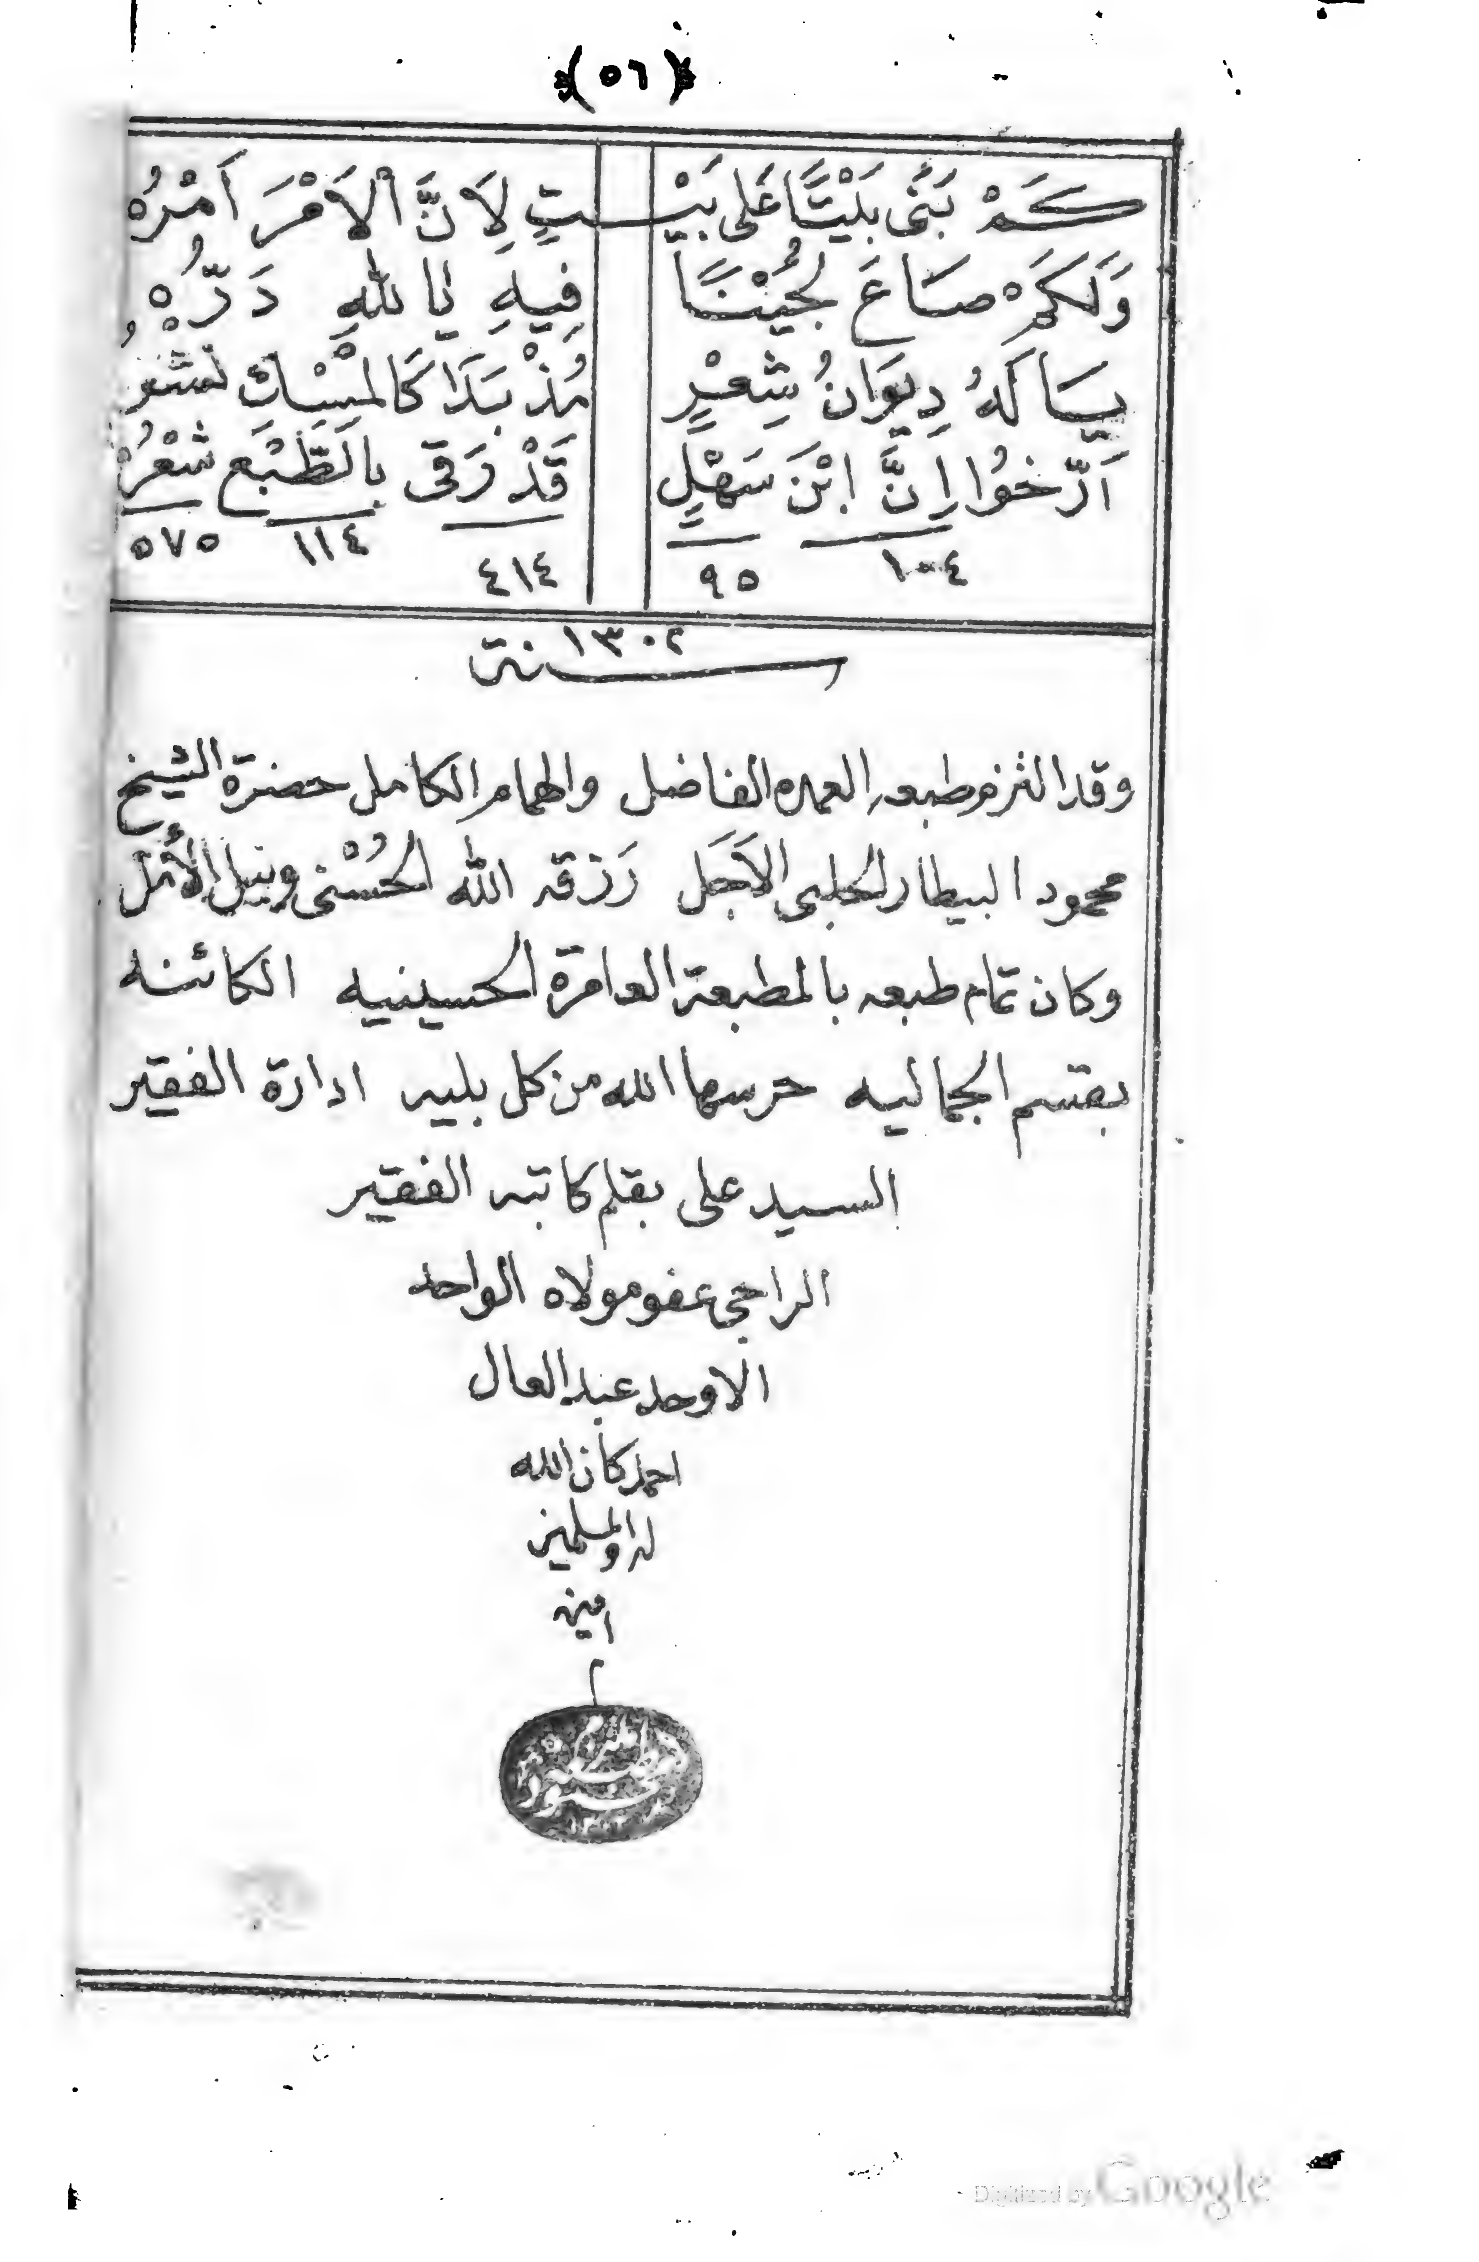 ﴿٥٦﴾
كَمْ بَنَى بَيْتًا عَلَى بَيْـتٍ لِاَنَّ الاَمْرَ اَمْرُهْ
وَلَكَمْ صَاغَ لُجَيْنًا فِيهِ يا لله دَرُّهْ
يَا لَهُ دِيوَانُ شِعْرٍ مُذْ بَدَا كَالْمِسْكِ نَشْرُهْ
اَرِّخُوا اِنَّ ابْنَ سَهْلٍ قَدْ رَقَى بِالطَّبْعِ شِعْرُهْ
١٠٤ ٩٥ ٤١٤ ١١٤ ٥٧٥
سنة ١٣٠٢
وقد التزم طبعه العمده الفاضل والهمام الكامل حضرة الشيخ
محمود البيطار الحلبى الاَجَل رَزقه الله الحُسْنى ونيل الأمل
وكان تمام طبعه بالمطبعة العامرة الحسينيه الكائنه
بقسم الجماليه حرسها الله من كل بليه ادارة الفقير
السيد على بقلم كاتبه الفقير
الراجى عفو مولاه الواحد
الاوحد عبد العال
احمد كان الله
له والمسلمين
امين
م
Digitized by Google